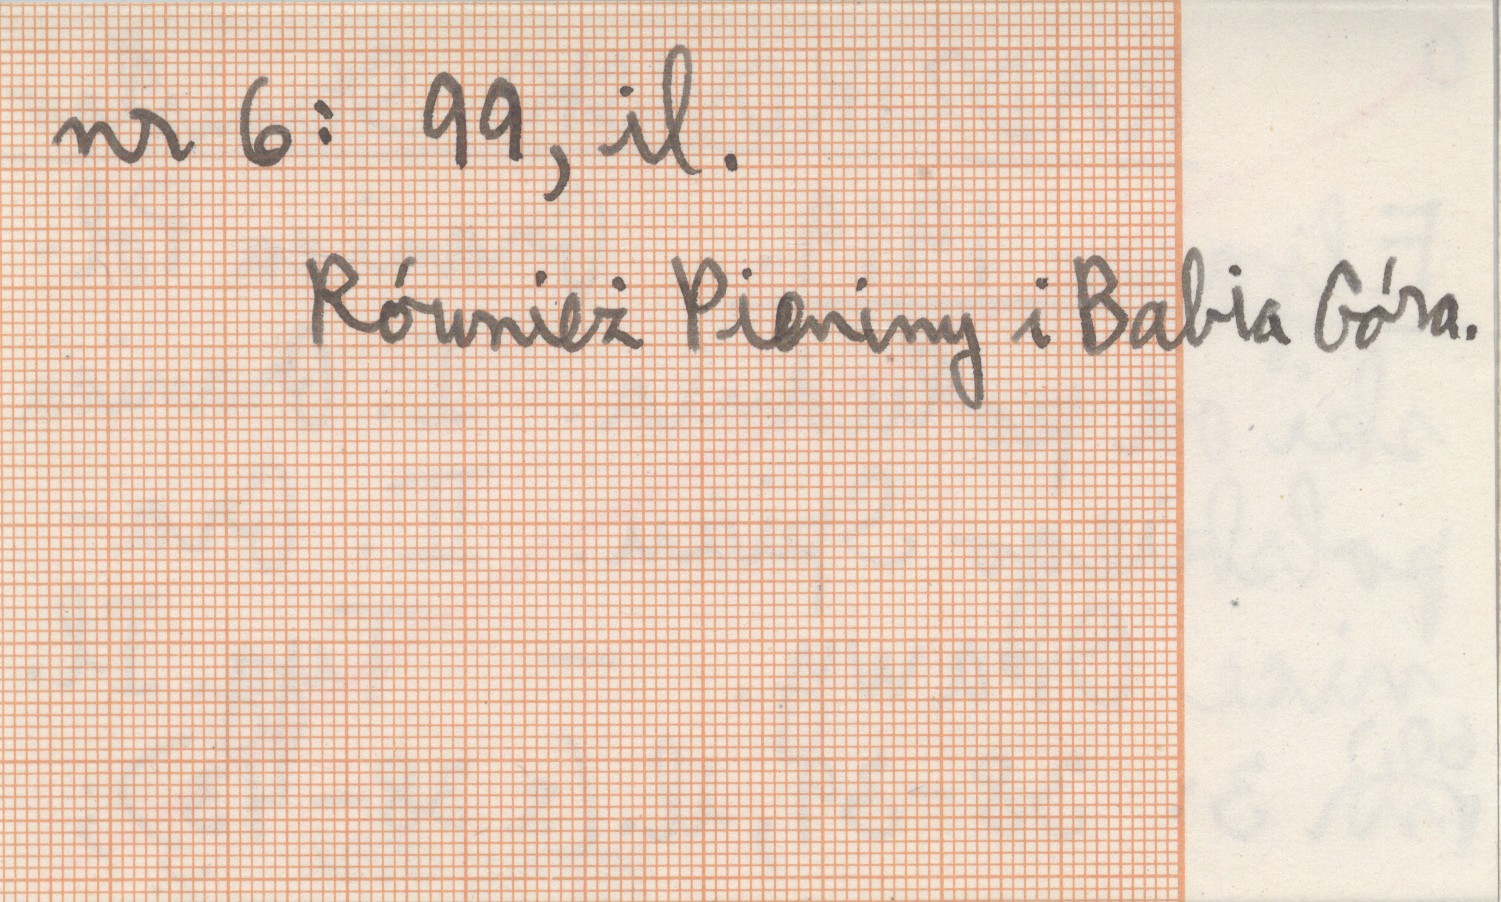 nr 6: 99, il.
Również Pieniny i Babia Góra.